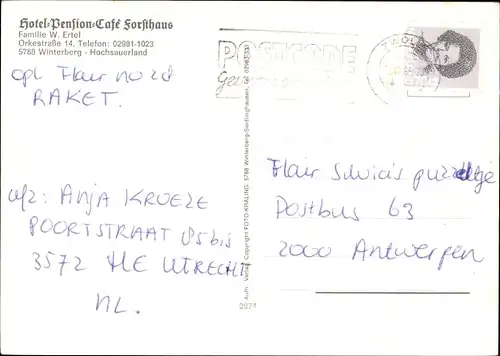 Hotel-Pension-Café Forsthaus
Familie W. Ertel
Orkestraße 14, Telefon: 02981-1023
5788 Winterberg - Hochsauerland
opl Flair no 28
RAKET.
afz: Anja KROEZE
POORTSTRAAT 85 bis
3572 HE UTRECHT
NL.
POSTCODE
Flair Silvia's puzzeltje
Postbus 63
2000 Antwerpen
Copyright FOTO-KRALING, 5788 Winterberg-Siedlinghausen, Tel.